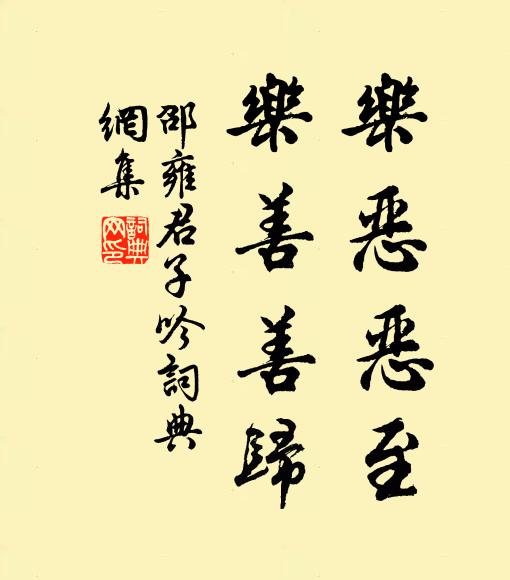 樂惡惡至
樂善善歸
邵雍君子吟詞典
網集
詞典
網印